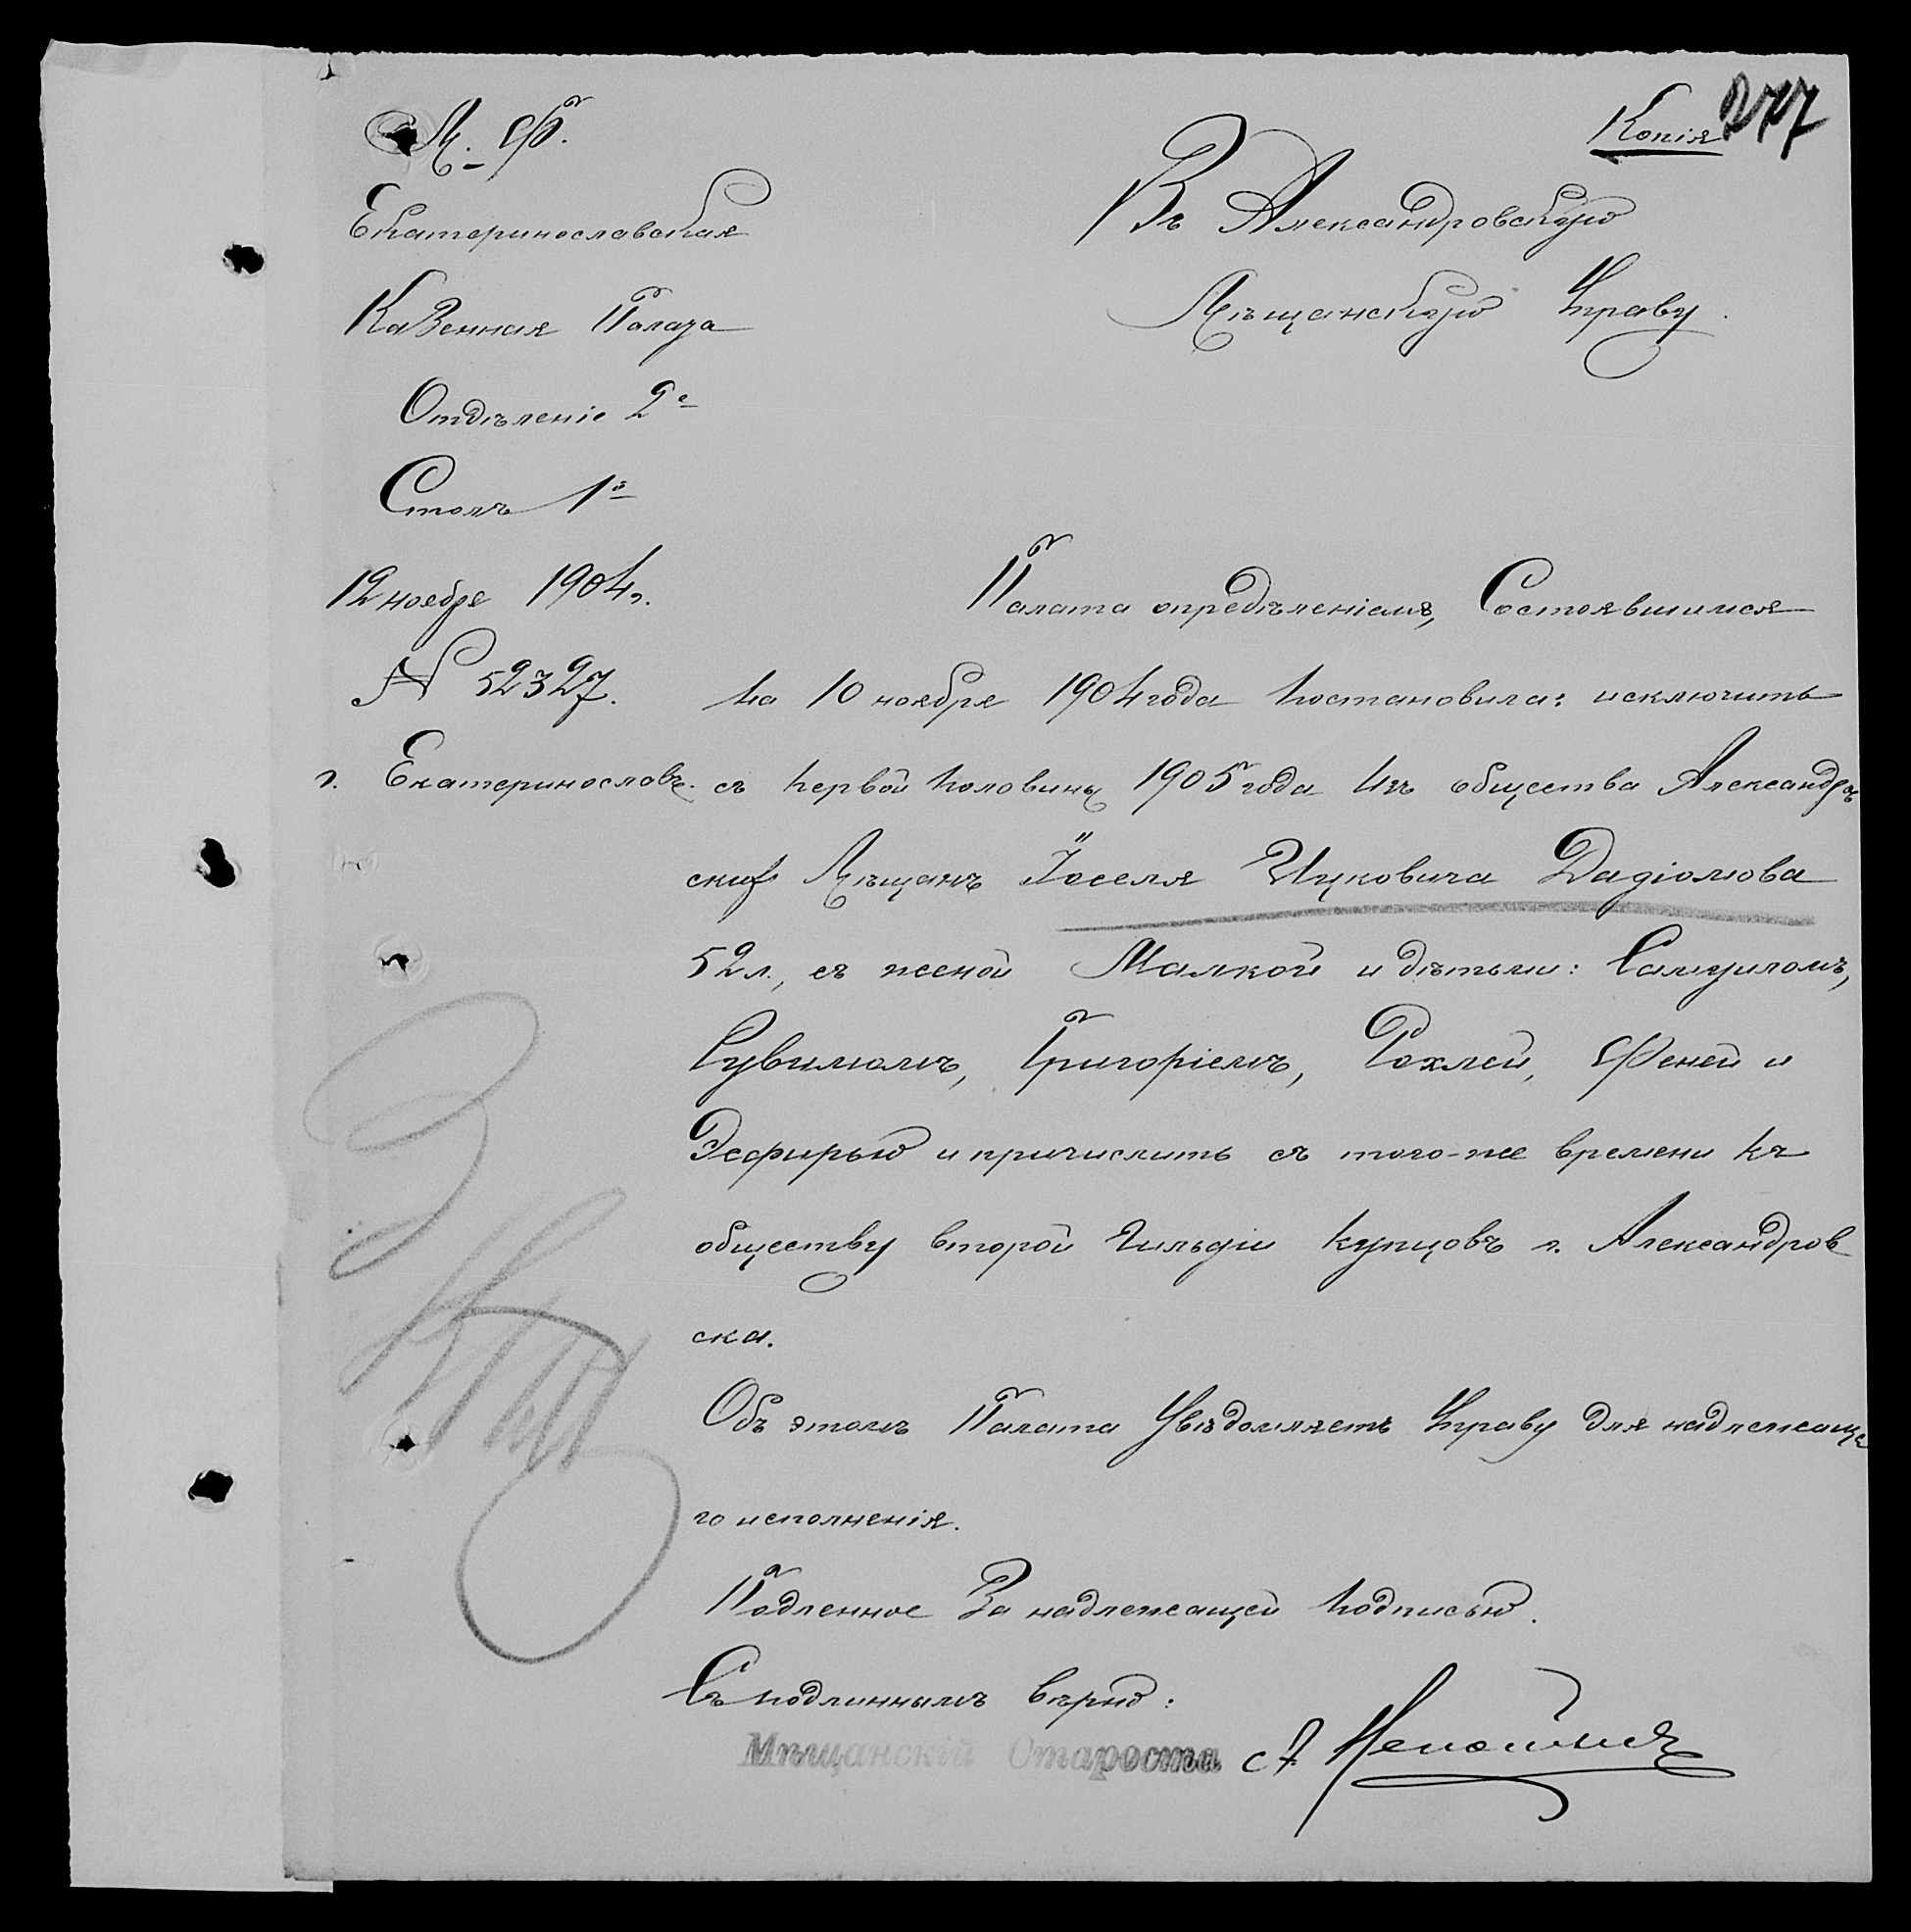 Копія
277
М. Ф.
Екатеринославская
Казенная Палата
Отдѣленіе 2е
Столъ 1й
12 ноября 1904 г.
№ 52327.
г. Екатеринославъ.
Въ Александровскую
Мѣщанскую Управу.
Палата опредѣленіемъ, Состоявшимся
на 10 ноября 1904 года постановила: исключить
съ первой половины 1905 года изъ общества Александров
скихъ Мѣщанъ Іоселя Ицковича Дадіомова
52 л., съ женой Малкой и дѣтьми: Самуиломъ,
Рувимомъ, Григоріемъ, Рохлей, Феней и
Эсфирью и причислить съ того-же времени къ
обществу второй гильдіи купцовъ г. Александров
ска.
Объ этомъ Палата увѣдомляетъ Управу для надлежаще
го исполненія.
Подленное За надлежащей подписью.
Съ подлиннымъ вѣрно:
Мѣщанскій Староста